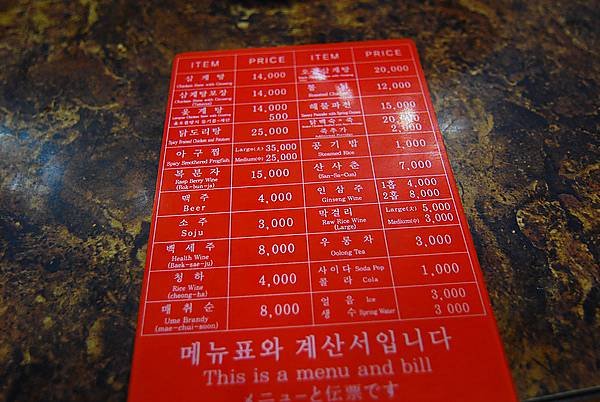 ITEM PRICE ITEM PRICE
삼 계 탕 14,000
Chicken Stew with Ginseng
삼계탕포장 14,000
Chicken Stew with Ginseng
옻 계 탕 14,000
500
닭도리탕 25,000
Spicy Braised Chicken and Potatoes
아 구 찜 Large(大) 35,000
Spicy Smothered Frogfish Medium(中) 25,000
복 분 자 15,000
Rasp Berry Wine
(Bok-bun-ja)
맥 주 4,000
Beer
소 주 3,000
Soju
백 세 주 8,000
Health Wine
(Baek-sae-ju)
청 하 4,000
Rice Wine
(cheong-ha)
매 취 순 8,000
Ume Brandy
(mae-chui-soon)
20,000
12,000
해물파전 15,000
닭백숙·죽 20,000
죽추가 2,000
공 기 밥 1,000
Steamed Rice
산 사 춘 7,000
(San-Sa-Cun)
인 삼 주 1홉 4,000
Ginseng Wine 2홉 8,000
막걸리 Large(大) 5,000
Raw Rice Wine Medium(中) 3,000
(Large)
우 롱 차 3,000
Oolong Tea
사이다 Soda Pop 1,000
콜 라 Cola
얼 음 Ice 3,000
생 수 Spring Water 3 000
메뉴표와 계산서입니다
This is a menu and bill
メニューと伝票です